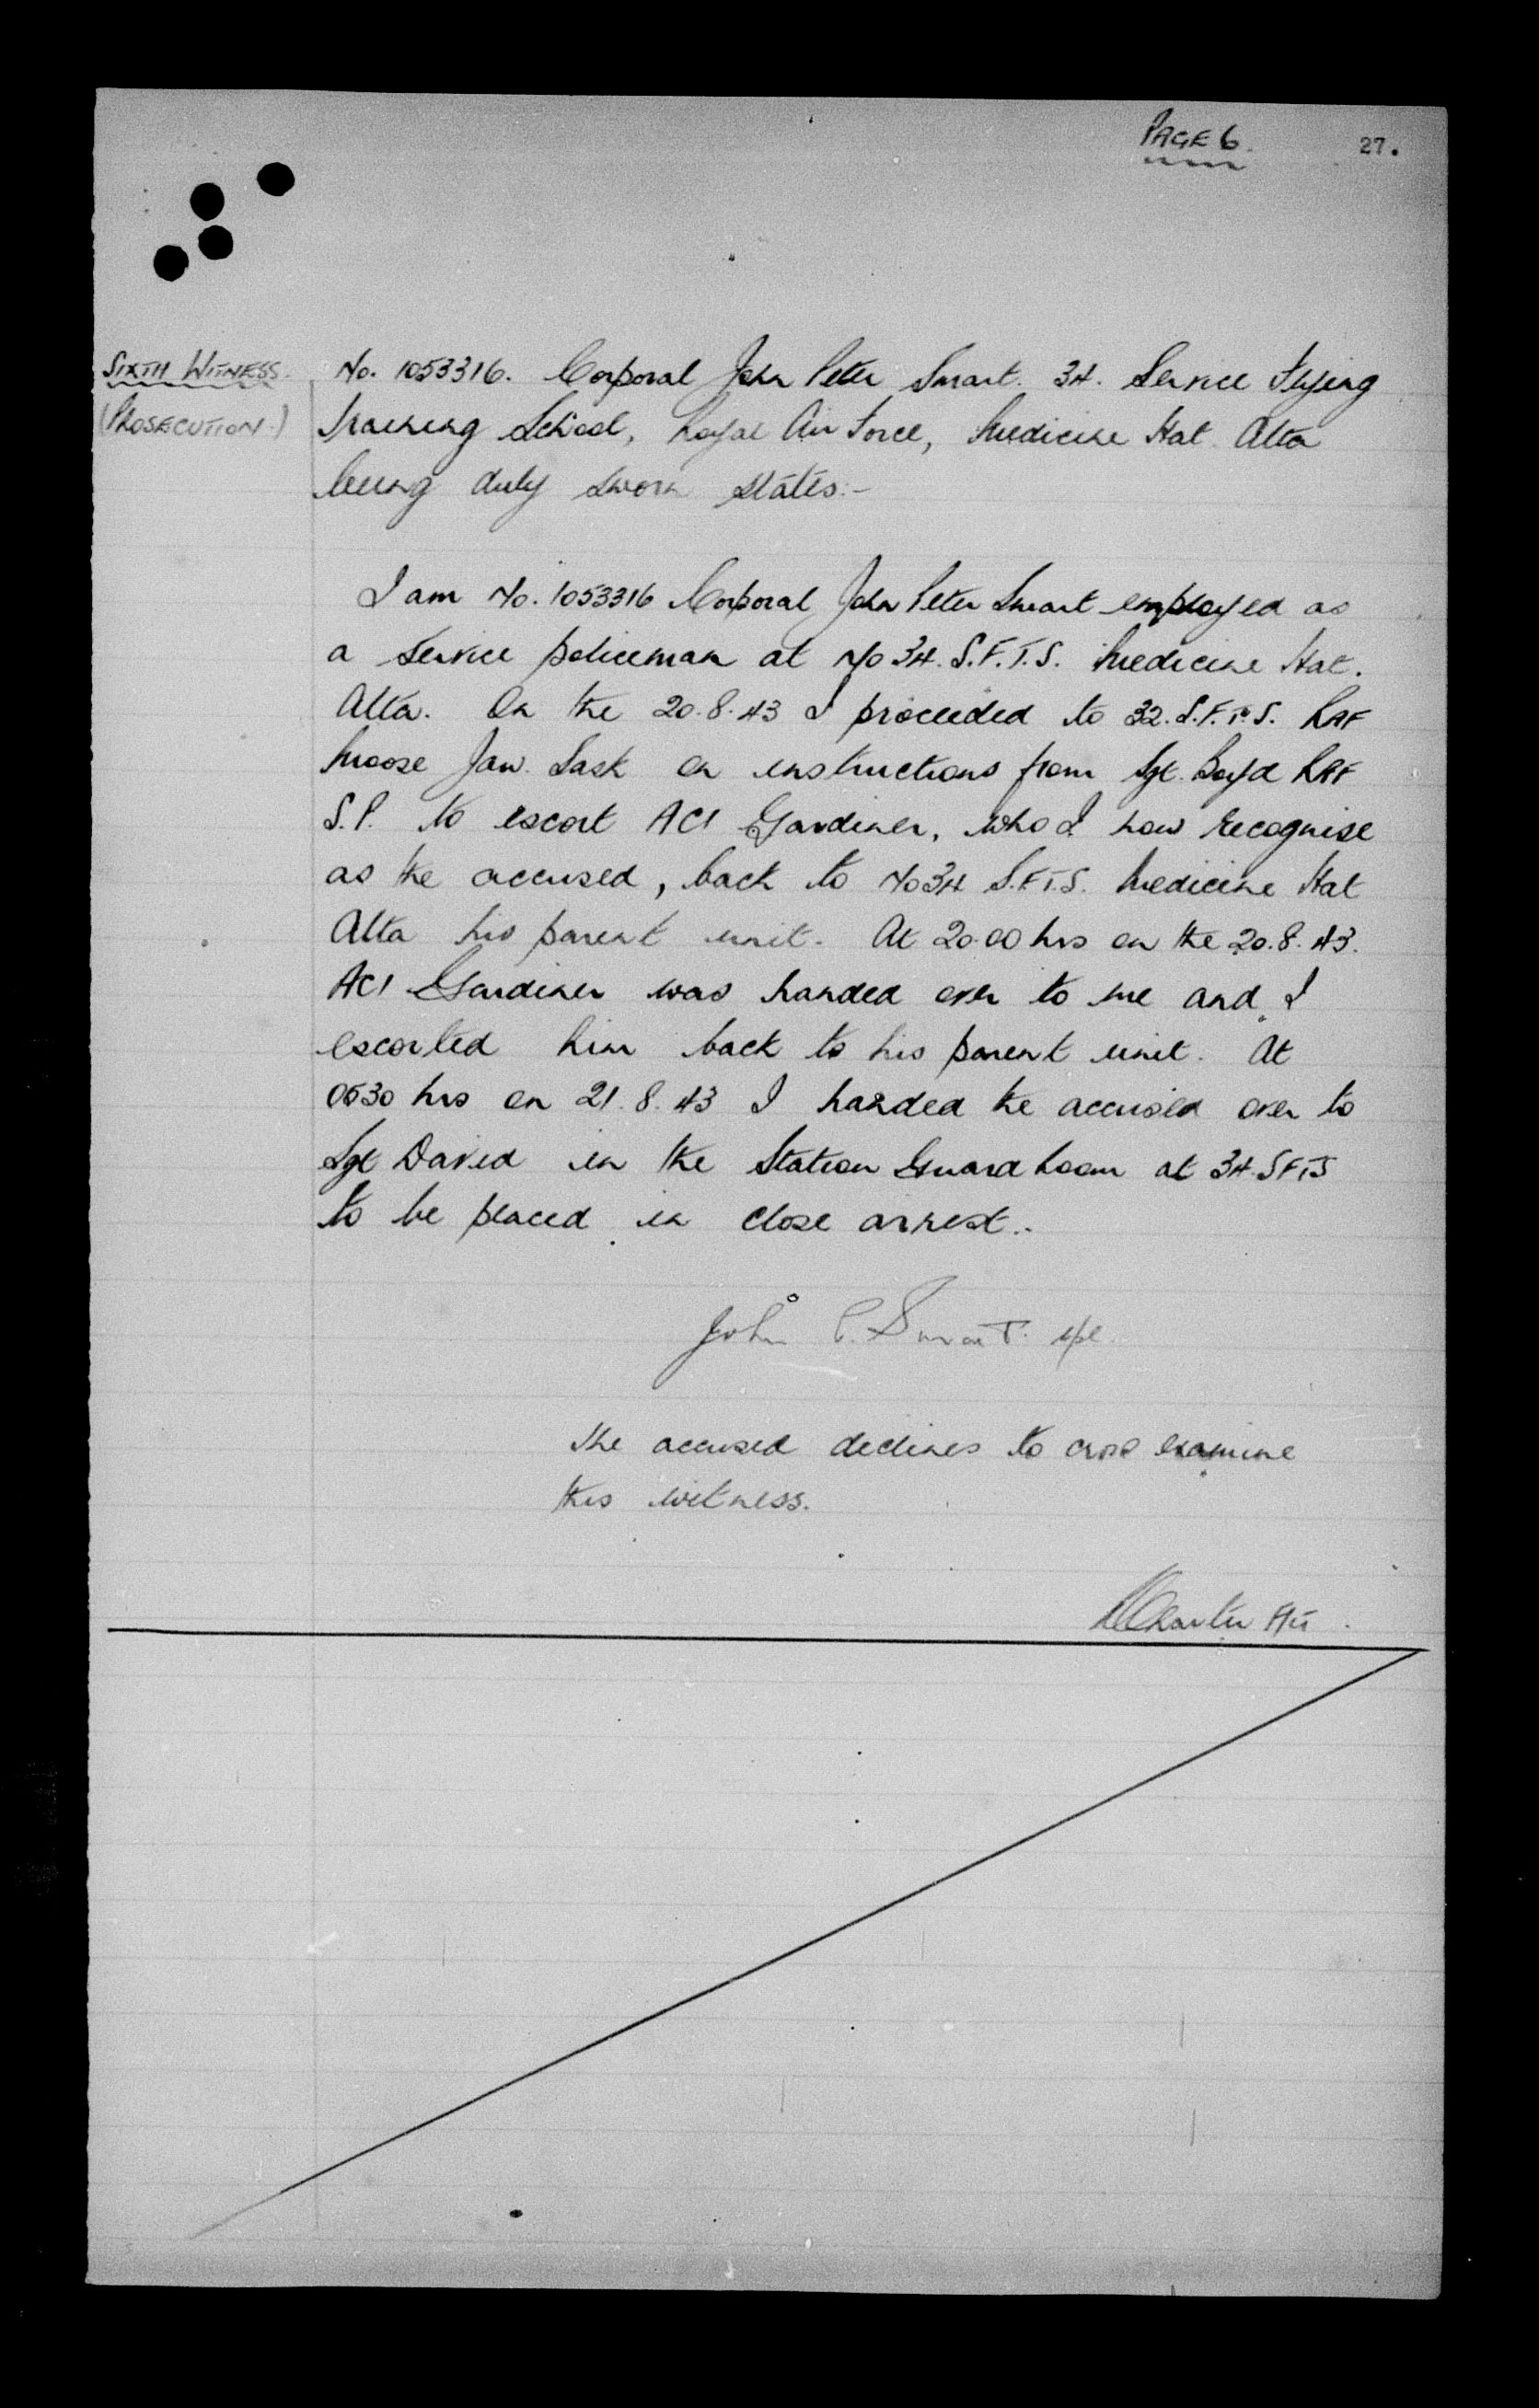 PAGE 6.
27.
SIXTH WITNESS.
(PROSECUTION.)
No. 1053316. Corporal John Peter Smart. 34. Service Flying
Training School, Royal Air Force, Medicine Hat Alta
being duly sworn states:-
I am No. 1053316 Corporal John Peter Smart employed as
a service policeman at No 34. S.F.T.S. Medicine Hat.
Alta. On the 20.8.43 I proceeded to 32. S.F.T.S. RAF
Moose Jaw. Sask on instructions from Sgt. Boyd RAF
S.P. to escort AC1 Gardiner, who I now recognise
as the accused, back to No 34 S.F.T.S. Medicine Hat
Alta his parent unit. At 20.00 hrs on the 20.8.43.
AC1 Gardiner was handed over to me and I
escorted him back to his parent unit. At
0530 hrs on 21.8.43 I handed the accused over to
Sgt David in the Station Guard Room at 34. SFTS
to be placed in close arrest..
John P. Smart. cpl.
The accused declines to cross examine
this witness.